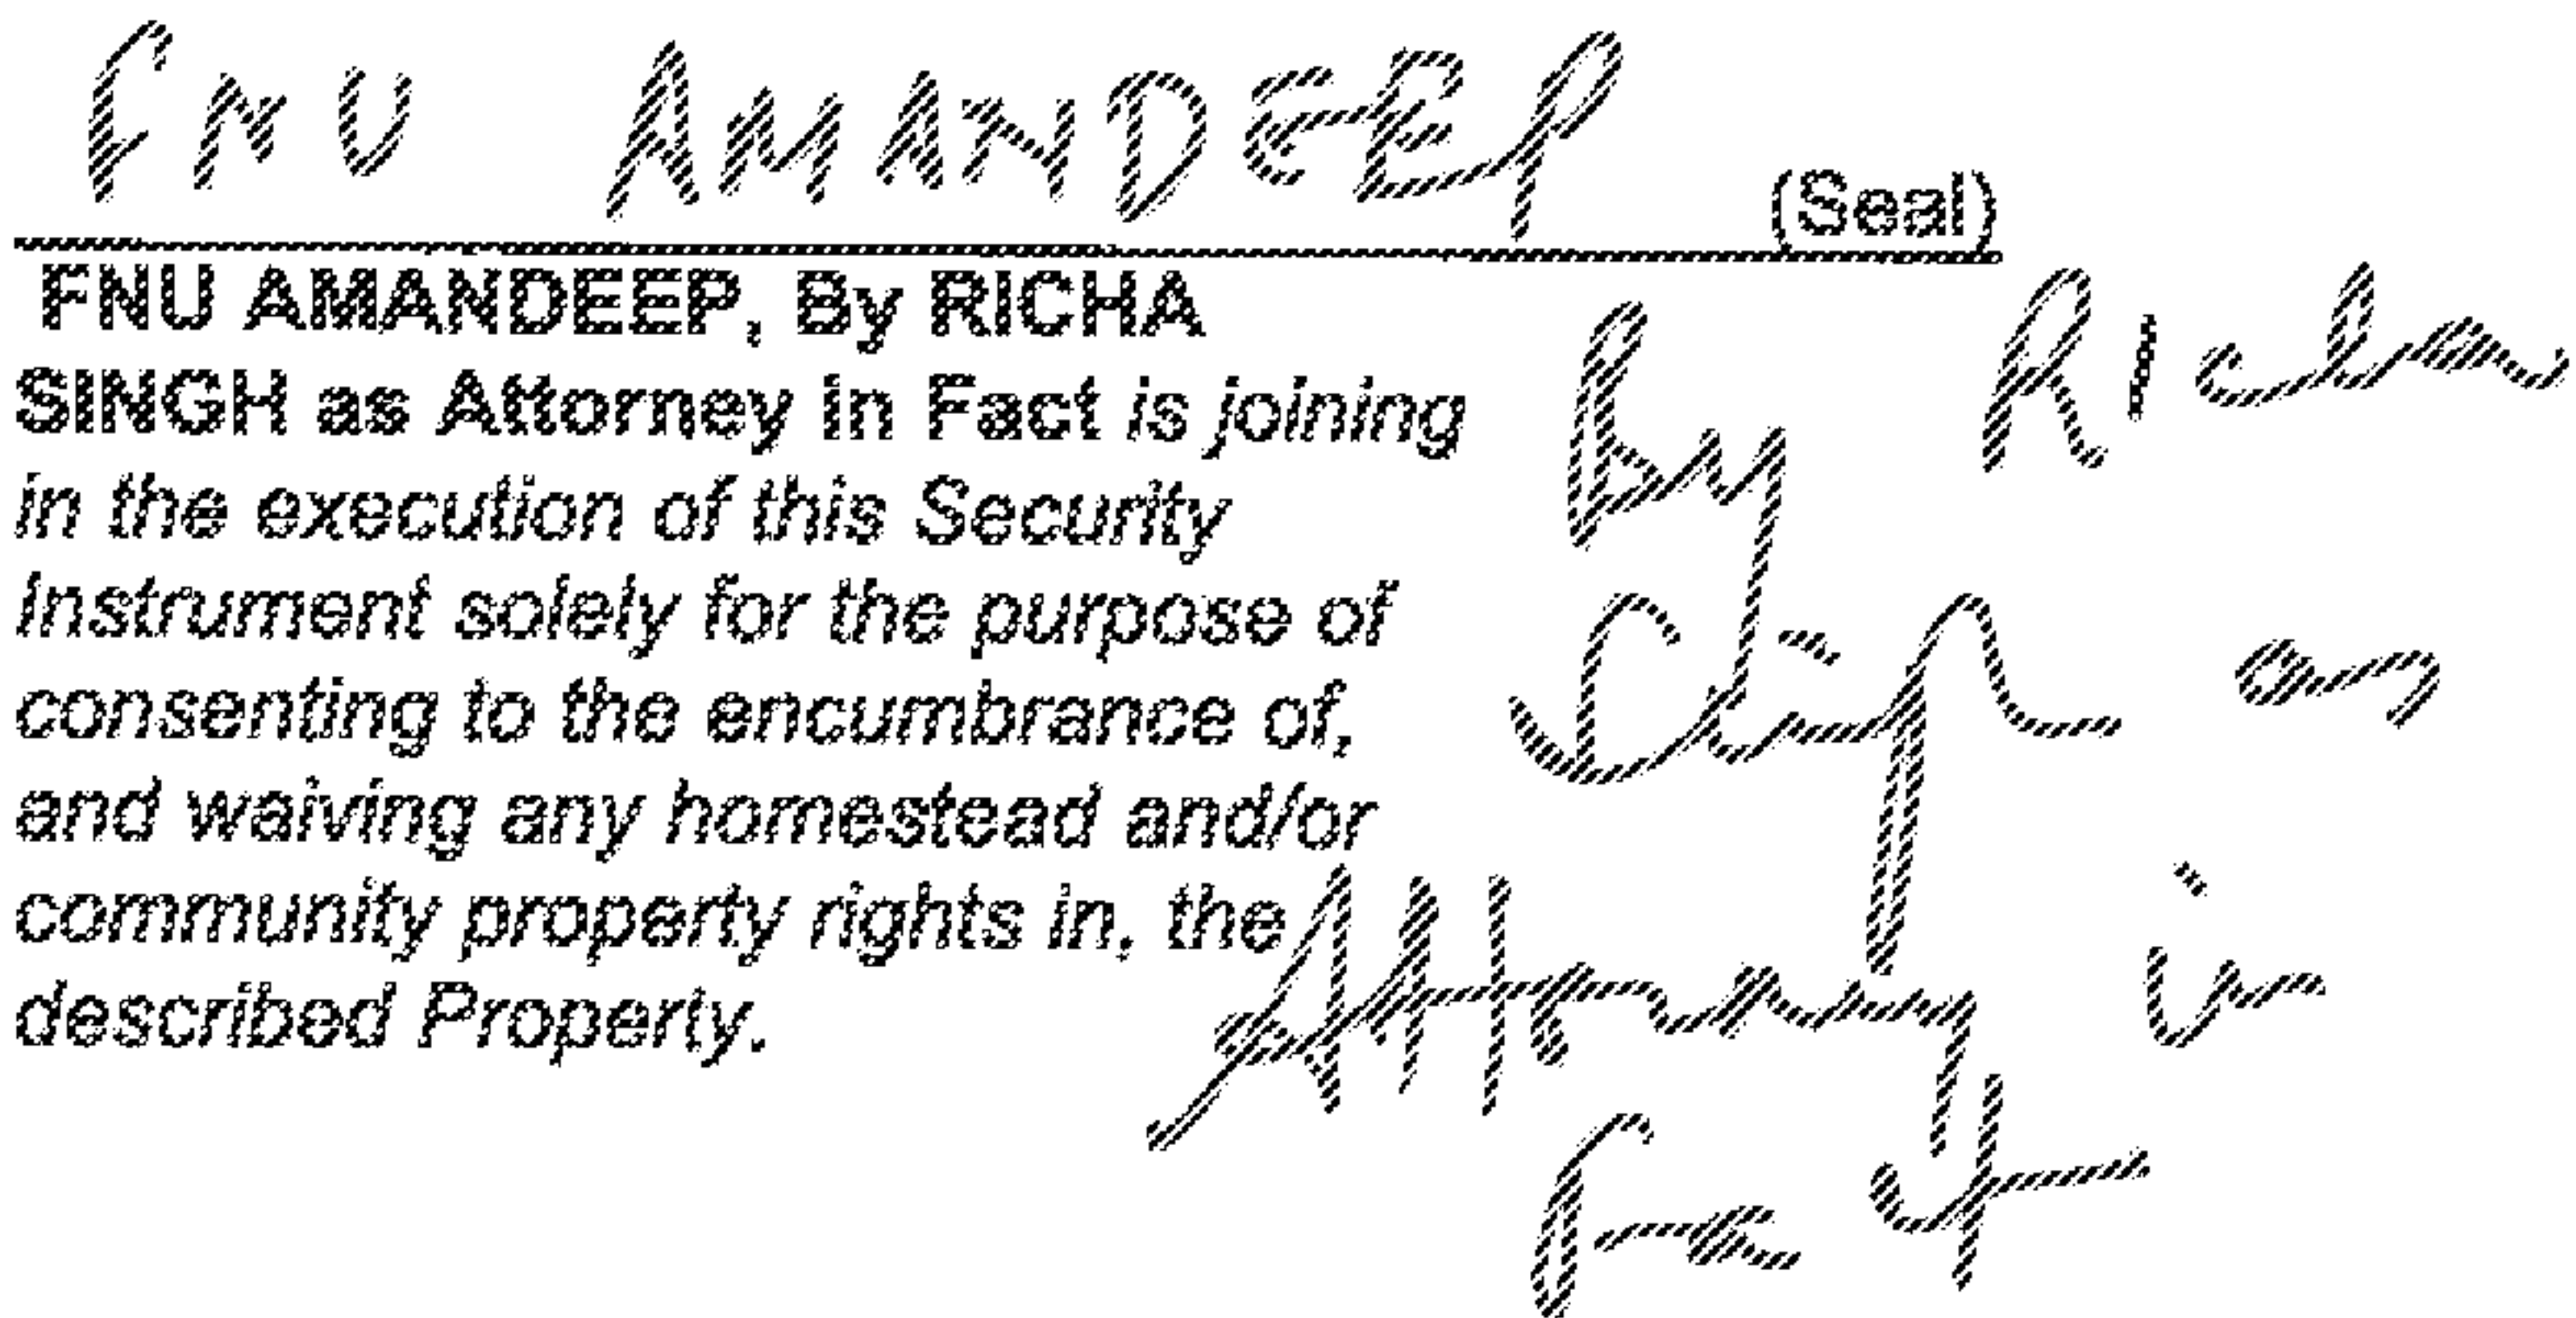 FNU AMANDEEP
(Seal)
FNU AMANDEEP, By RICHA
SINGH as Attorney in Fact is joining
in the execution of this Security
Instrument solely for the purpose of
consenting to the encumbrance of,
and waiving any homestead and/or
community property rights in, the
described Property.
By Richa
Singh as
Attorney in
Fact